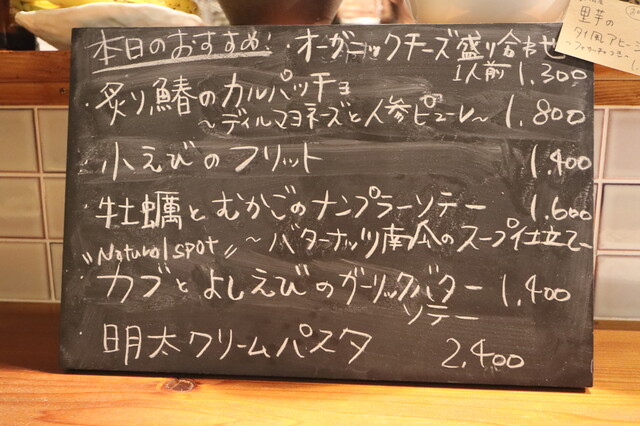 本日のおすすめ! ・オーガニックチーズ盛り合わせ
1人前 1,300
・炙り鰆のカルパッチョ
〜ディルマヨネーズと人参ピューレ〜 1,800
・小えびのフリット 1,400
・牡蠣とむかごのナンプラーソテー 1,600
〜バターナッツ南瓜のスープ仕立て〜
"Natural spot"
・カブとよしえびのガーリックバター 1,400
ソテー
・明太クリームパスタ 2,400
里芋の
タイ風アヒー